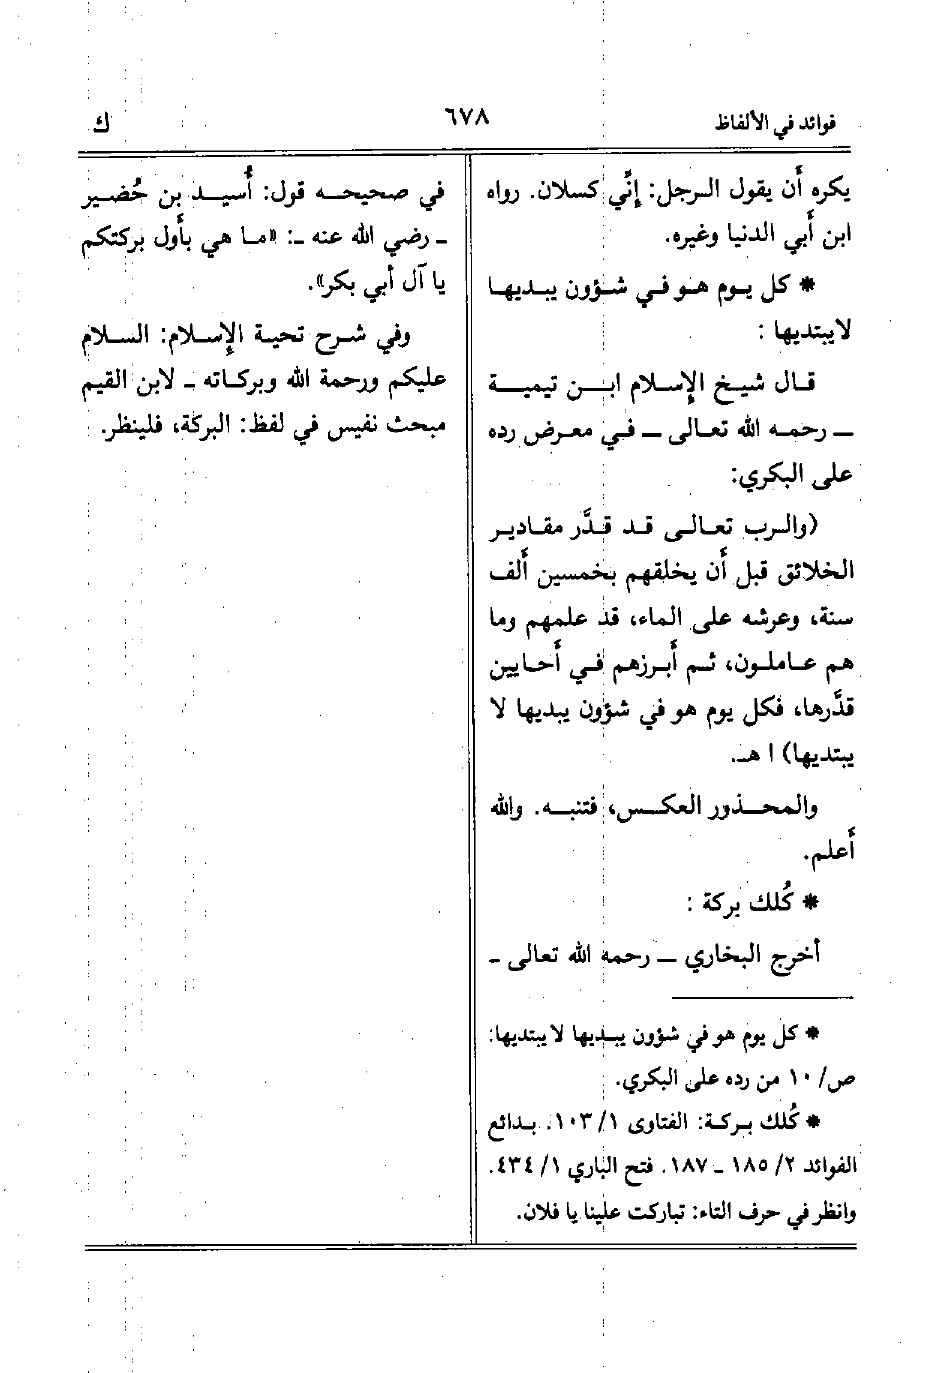 فوائد في الألفاظ
٦٧٨
ك
يكره أن يقول الرجل: إنِّي كسلان. رواه
ابن أبي الدنيا وغيره.
* كل يوم هو في شؤون يبديها
لا يبتديها :
قال شيخ الإسلام ابن تيمية
ـ رحمه الله تعالى ـ في معرض رده
على البكري:
(والرب تعالى قد قدَّر مقادير
الخلائق قبل أن يخلقهم بخمسين ألف
سنة، وعرشه على الماء، قد علمهم وما
هم عاملون، ثم أبرزهم في أحايين
قدَّرها، فكل يوم هو في شؤون يبديها لا
يبتديها) ا هـ.
والمحذور العكس، فتنبه. والله
أعلم.
* كُلك بركة :
أخرج البخاري ـ رحمه الله تعالى ـ
* كل يوم هو في شؤون يبديها لا يبتديها:
ص/ ١٠ من رده على البكري.
* كُلك بركة: الفتاوى ١/ ١٠٣. بدائع
الفوائد ٢/ ١٨٥ ـ ١٨٧. فتح الباري ١/ ٤٣٤.
وانظر في حرف التاء: تباركت علينا يا فلان.
في صحيحه قول: أُسيد بن حُضير
ـ رضي الله عنه ـ: «ما هي بأول بركتكم
يا آل أبي بكر».
وفي شرح تحية الإسلام: السلام
عليكم ورحمة الله وبركاته ـ لابن القيم
مبحث نفيس في لفظ: البركة، فلينظر.